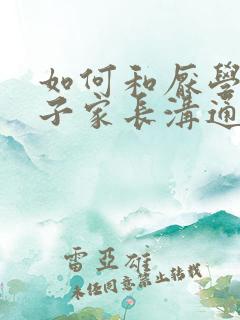 如何和厭學
子家長溝通
雷亞雄
未经同意禁止转载